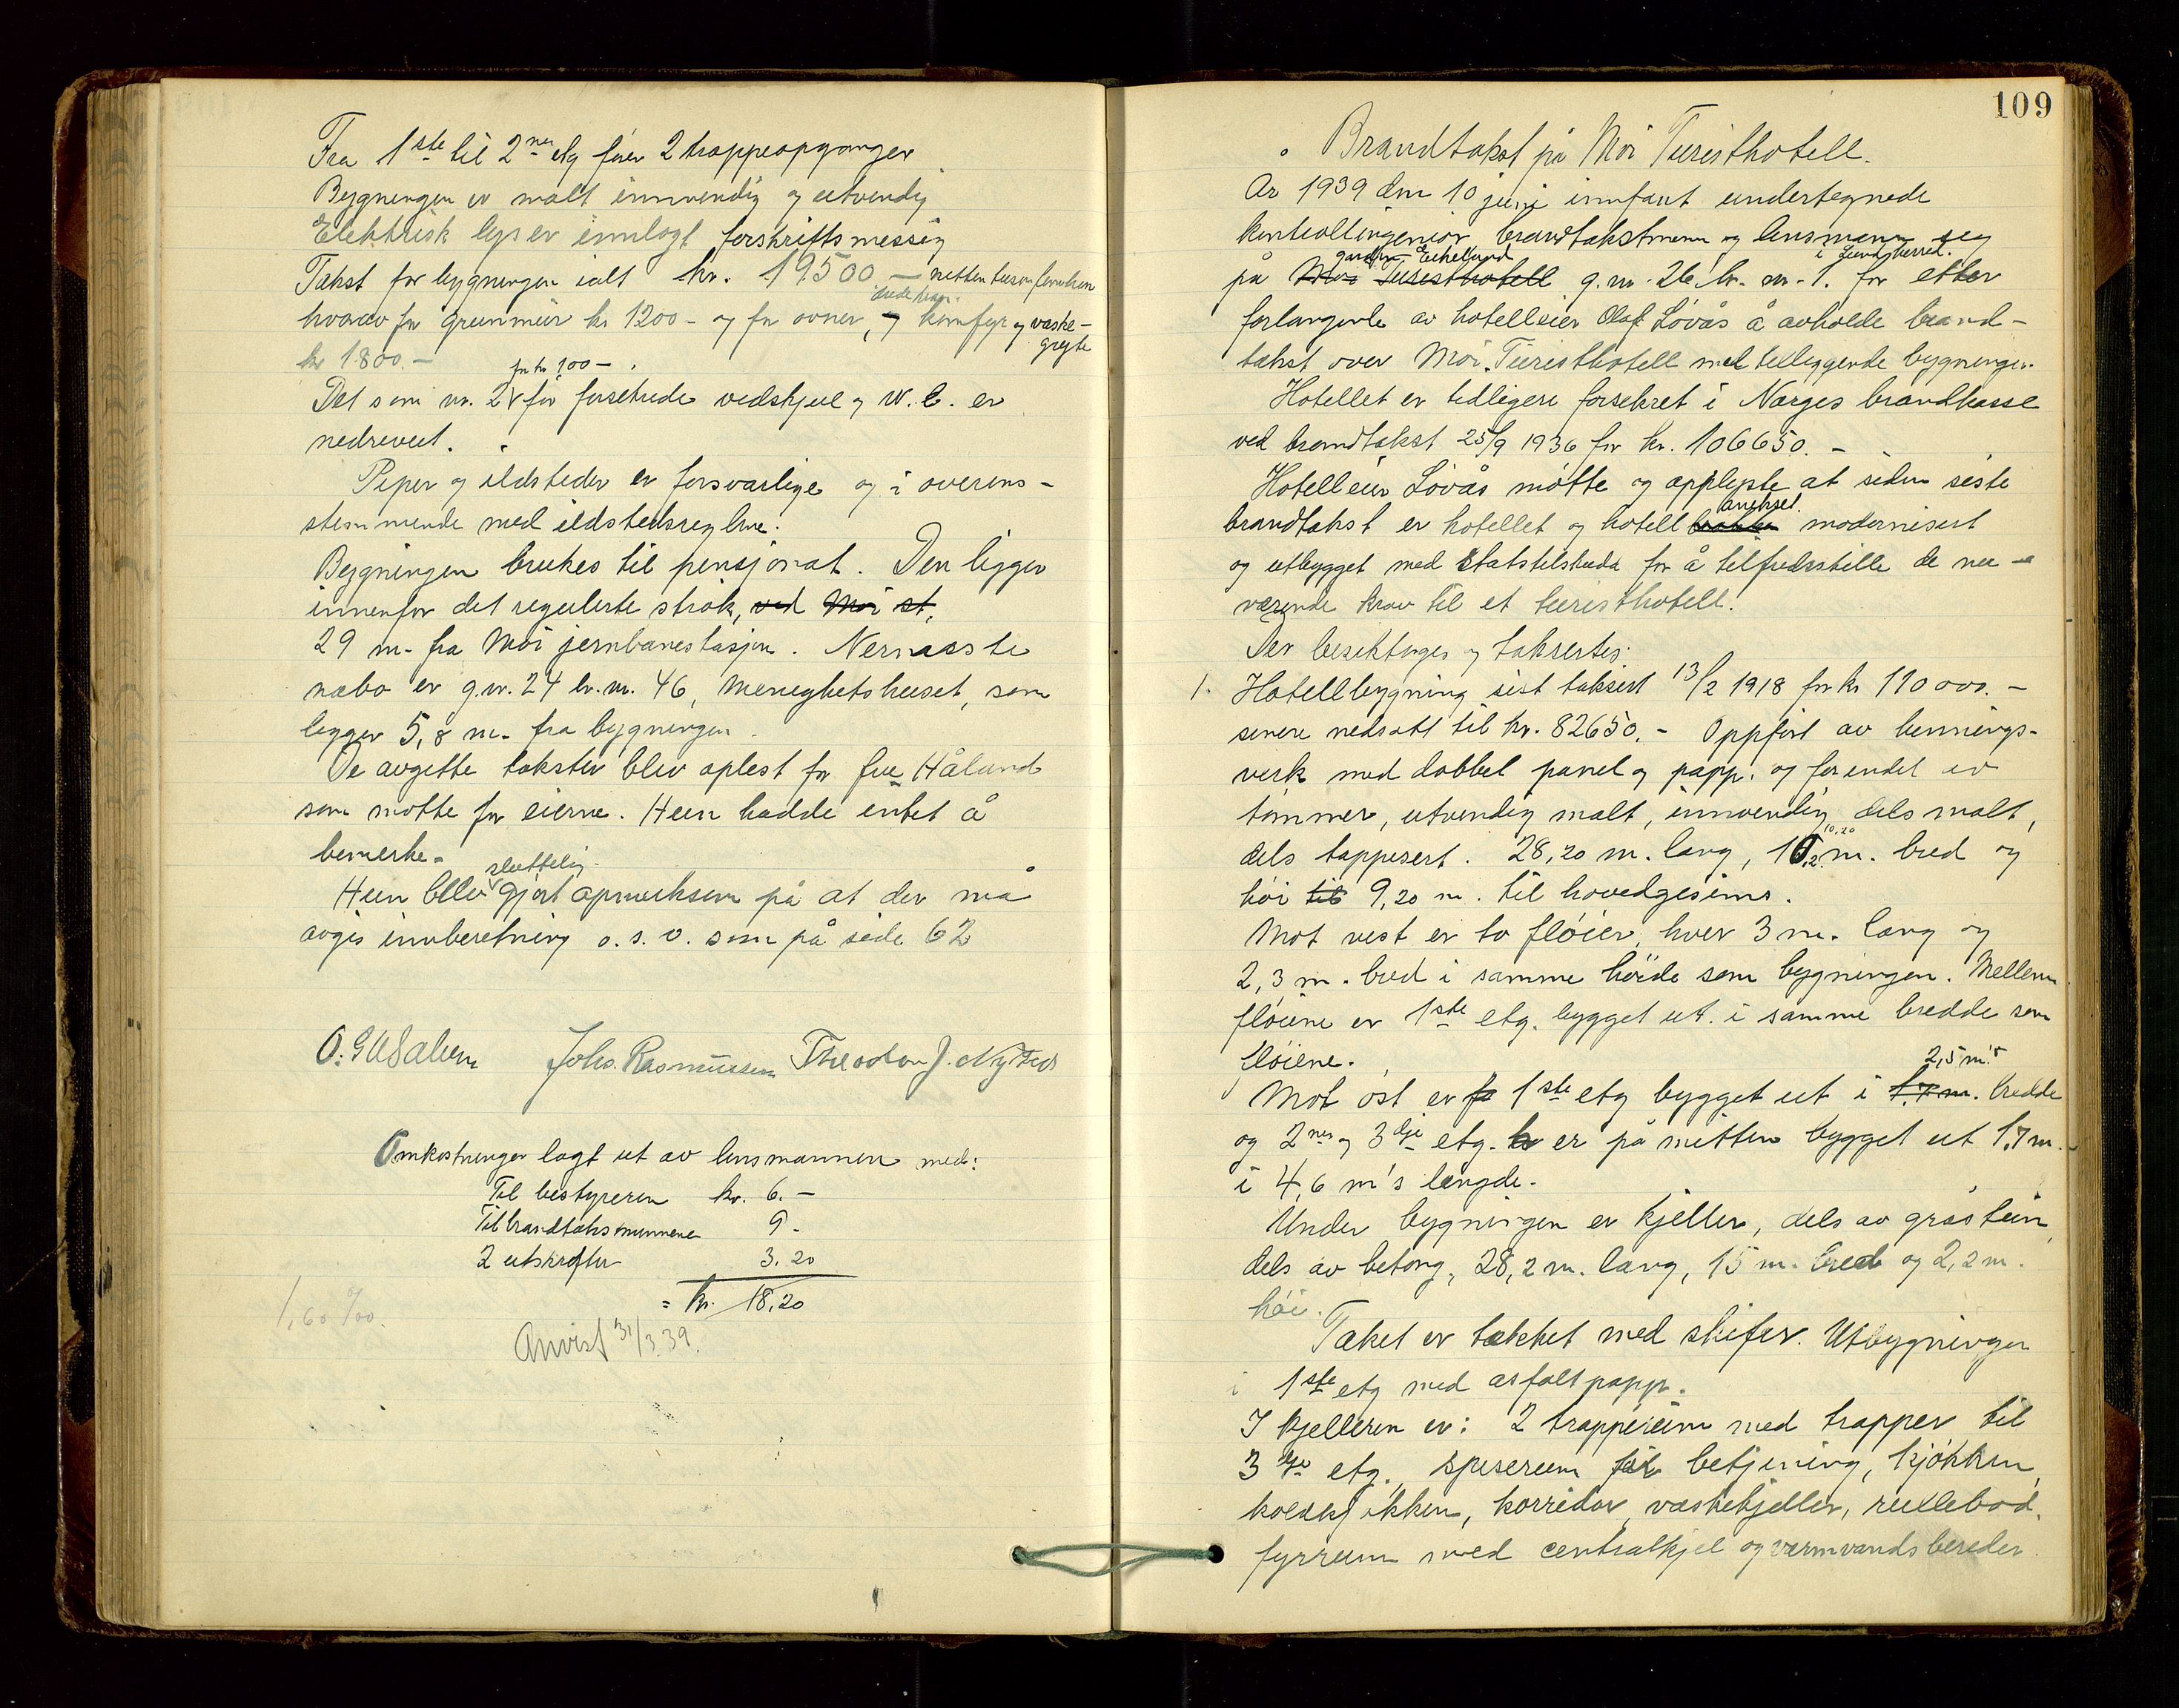 Fra 1ste til 2nen etg fører 2 trappeopganger
Bygningen er malt innvendig og utvendig
Elektrisk lys er innlagt forskriftsmessig
Takst for bygningen ialt kr. 19500 — nitten tusen femhun
hvorav for grunnmur kr 1200 - og for ovner, og komfyr og vaske-
gryte
kr 1800. —
for kr 100 — .
Det som nr. 2 før forsekrede vedskjul og W. C. er
nedrevet.
Piper og ildsteder er forsvarlige og i overens-
stemmende med ildstedsreglene.
Bygningen brukes til pensjonat. Den ligger
innenfor det regulerte strøk, ved Moi st,
29 m. fra Moi jernbanestasjon. Nermeste
nabo er g.nr. 24 br.nr. 46, Menighetshuset, som
ligger 5,8 m. fra bygningen.
De avgitte takster blev oplest for frue Håland
som møtte for eierne. Hun hadde intet å
bemerke.
sluttelig
Hun blev gjort opmerksom på at der må
avgis innberetning o. s. v. som på side 62
Johs. Rasmussen Theodor J. Nysted
Omkostninger lagt ut av lensmannen med:
Til bestyreren kr. 6. —
Til brandtakstmennene 9 -
2 utskrifter 3.20
= kr. 18,20
1,60 ‰.
Anvist 31/3 39.
109
Brandtakst på Moi Turisthotell.
År 1939 den 10 juni innfant undertegnede
kontrollingeniør, brandtakstmenn og lensmann seg
garden Eikeland i Lund herred.
på Moi Turisthotell g.nr. 26 br. nr. 1. for etter
forlangende av hotelleier Olaf Løvås å avholde brand-
takst over Moi Turisthotell med tilliggende bygninger.
Hotellet er tidligere forsekret i Norges brandkasse
ved brandtakst 25/9 1936 for kr. 106650. —
Hotelleier Løvås møtte og opplyste at siden siste
annekset.
brandtakst er hotellet og hotell modernisert
og utbygget med statstilskudd for å tilfredsstille de nu-
værende krav til et turisthotell.
Der besiktiges og taksertes:
1. Hotellbygning sist taksert 13/2 1918 for kr 110 000. —
senere nedsatt til kr. 82650. - Oppført av binnings-
verk med dobbel panel og papp. og for endel av
tømmer, utvendig malt, innvendig dels malt,
10,20
dels tappesert. 28,20 m. lang, m. bred og
høi til 9,20 m. til hovedgesims.
Mot vest er to fløier, hver 3 m. lang og
2,3 m. bred i samme høide som bygningen. Mellem
fløiene er 1ste etg. bygget ut i samme bredde som
fløiene.
2,5 m's
Mot øst er 1ste etg bygget ut i 1,7 m. bredde
og 2nen og 3dje etg. er på mitten bygget ut 1,7 m.
i 4,6 m's længde.
Under bygningen er kjeller, dels av gråstein,
dels av betong, 28,2 m. lang, 15 m. bred og 2,2 m.
høi.
Taket er tækket med skifer. Utbygningen
i 1ste etg med asfaltpapp.
I kjelleren er: 2 trapperum med trapper til
3dje etg., spiserum for betjening, kjøkken,
koldkjøkken, korridor, vaskekjeller, rullebod,
fyrrum med centralkjel og varmvandsbereder